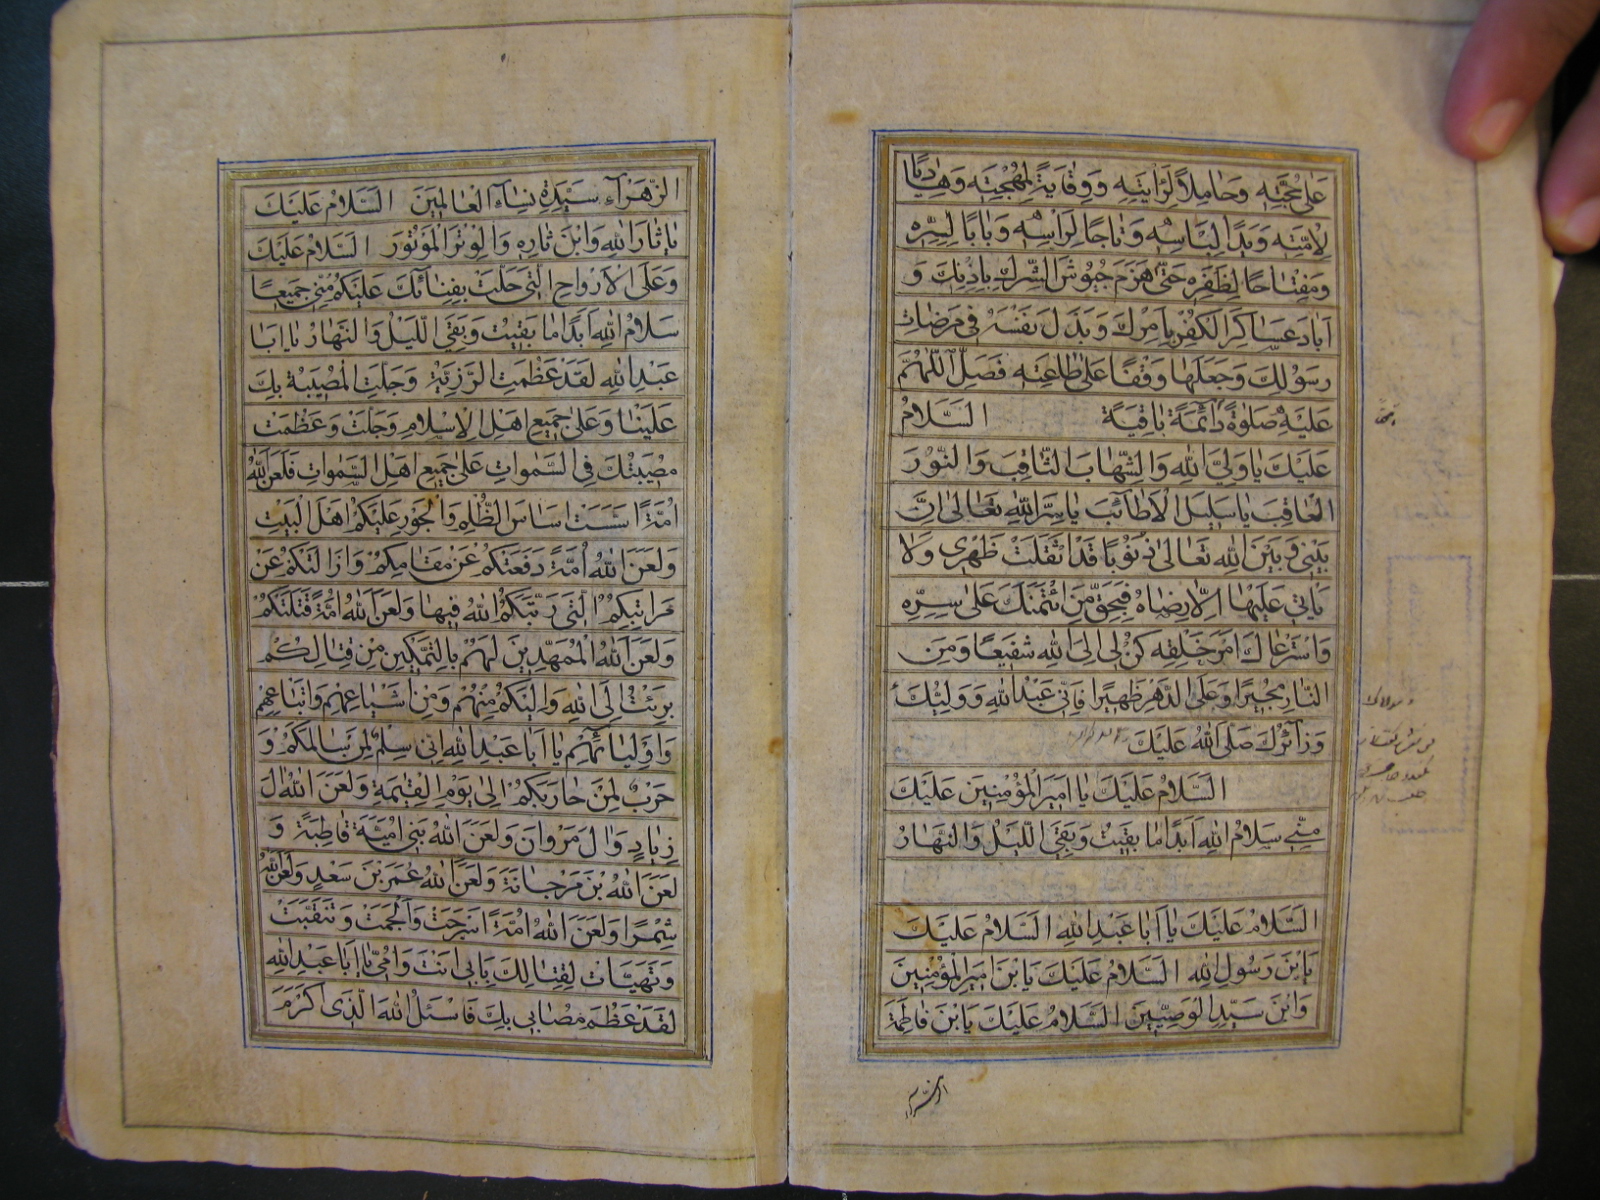 عَلىٰ حُجَّتِهِ وَحَامِلاً لِرَايَتِهِ وَوِقَايَةً لِمُهْجَتِهِ وَهَادِيًا
لِاُمَّتِهِ وَيَدًا لِبَاْسِهِ وَتَاجًا لِرَاْسِهِ وَبَابًا لِسِرِّهِ
وَمِفْتَاحًا لِظَفَرِهِ حَتّىٰ هَزَمَ جُيُوشَ الشِّرْكِ بِاِذْنِكَ وَ
اَبَادَ عَسَاكِرَ الْكُفْرِ بِاَمْرِكَ وَبَذَلَ نَفْسَهُ فِى مَرْضَاتِ
رَسُولِكَ وَجَعَلَهَا وَقْفًا عَلىٰ طَاعَتِهِ فَصَلِّ اللّٰهُمَّ
عَلَيْهِ صَلوٰةً دَائِمَةً بَاقِيَةً السَّلَامُ
عَلَيْكَ يَا وَلِيَّ اللهِ وَالشِّهَابَ الثَّاقِبَ وَالنُّورَ
الْعَاقِبَ يَا سَلِيلَ الْاَطَائِبِ يَا سِرَّ اللهِ تَعَالىٰ اِنَّ
بَيْنِى وَبَيْنَ اللهِ تَعَالىٰ ذُنُوبًا قَدْ اَثْقَلَتْ ظَهْرِى وَلَا
يَاْتِى عَلَيْهَا اِلَّا رِضَاهُ فَبِحَقِّ مَنِ ائْتَمَنَكَ عَلىٰ سِرِّهِ
وَاسْتَرْعَاكَ اَمْرَ خَلْقِهِ كُنْ لِى اِلَى اللهِ شَفِيعًا وَمِنَ
النَّارِ مُجِيرًا وَعَلَى الدَّهْرِ ظَهِيرًا فَاِنِّى عَبْدُ اللهِ وَوَلِيُّكَ
وَزَائِرُكَ صَلَّى اللهُ عَلَيْكَ
السَّلَامُ عَلَيْكَ يَا اَمِيرَ الْمُؤْمِنِينَ عَلَيْكَ
مِنِّى سَلَامُ اللهِ اَبَدًا مَا بَقِيتُ وَبَقِيَ اللَّيْلُ وَالنَّهَارُ
السَّلَامُ عَلَيْكَ يَا اَبَا عَبْدِ اللهِ السَّلَامُ عَلَيْكَ
يَابْنَ رَسُولِ اللهِ السَّلَامُ عَلَيْكَ يَابْنَ اَمِيرِ الْمُؤْمِنِينَ
وَابْنَ سَيِّدِ الْوَصِيِّينَ السَّلَامُ عَلَيْكَ يَابْنَ فَاطِمَةَ
الزهراء
الزَّهْرَاءِ سَيِّدَةِ نِسَاءِ الْعَالَمِينَ السَّلَامُ عَلَيْكَ
يَا ثَارَ اللهِ وَابْنَ ثَارِهِ وَالْوِتْرَ الْمَوْتُورَ السَّلَامُ عَلَيْكَ
وَعَلَى الْاَرْوَاحِ الَّتِى حَلَّتْ بِفِنَائِكَ عَلَيْكُمْ مِنِّى جَمِيعًا
سَلَامُ اللهِ اَبَدًا مَا بَقِيتُ وَبَقِيَ اللَّيْلُ وَالنَّهَارُ يَا اَبَا
عَبْدِ اللهِ لَقَدْ عَظُمَتِ الرَّزِيَّةُ وَجَلَّتِ الْمُصِيبَةُ بِكَ
عَلَيْنَا وَعَلىٰ جَمِيعِ اَهْلِ الْاِسْلَامِ وَجَلَّتْ وَعَظُمَتْ
مُصِيبَتُكَ فِى السَّمٰوَاتِ عَلىٰ جَمِيعِ اَهْلِ السَّمٰوَاتِ فَلَعَنَ اللهُ
اُمَّةً اَسَّسَتْ اَسَاسَ الظُّلْمِ وَالْجَوْرِ عَلَيْكُمْ اَهْلَ الْبَيْتِ
وَلَعَنَ اللهُ اُمَّةً دَفَعَتْكُمْ عَنْ مَقَامِكُمْ وَاَزَالَتْكُمْ عَنْ
مَرَاتِبِكُمُ الَّتِى رَتَّبَكُمُ اللهُ فِيهَا وَلَعَنَ اللهُ اُمَّةً قَتَلَتْكُمْ
وَلَعَنَ اللهُ الْمُمَهِّدِينَ لَهُمْ بِالتَّمْكِينِ مِنْ قِتَالِكُمْ
بَرِئْتُ اِلَى اللهِ وَاِلَيْكُمْ مِنْهُمْ وَمِنْ اَشْيَاعِهِمْ وَاَتْبَاعِهِمْ
وَاَوْلِيَائِهِمْ يَا اَبَا عَبْدِ اللهِ اِنِّى سِلْمٌ لِمَنْ سَالَمَكُمْ وَ
حَرْبٌ لِمَنْ حَارَبَكُمْ اِلىٰ يَوْمِ الْقِيٰمَةِ وَلَعَنَ اللهُ اٰلَ
زِيَادٍ وَاٰلَ مَرْوَانَ وَلَعَنَ اللهُ بَنِى اُمَيَّةَ قَاطِبَةً وَ
لَعَنَ اللهُ بْنَ مَرْجَانَةَ وَلَعَنَ اللهُ عُمَرَ بْنَ سَعْدٍ وَلَعَنَ اللهُ
شِمْرًا وَلَعَنَ اللهُ اُمَّةً اَسْرَجَتْ وَاَلْجَمَتْ وَتَنَقَّبَتْ
وَتَهَيَّاَتْ لِقِتَالِكَ بِاَبِى اَنْتَ وَاُمِّى يَا اَبَا عَبْدِ اللهِ
لَقَدْ عَظُمَ مُصَابِى بِكَ فَاَسْئَلُ اللهَ الَّذِى اَكْرَمَ